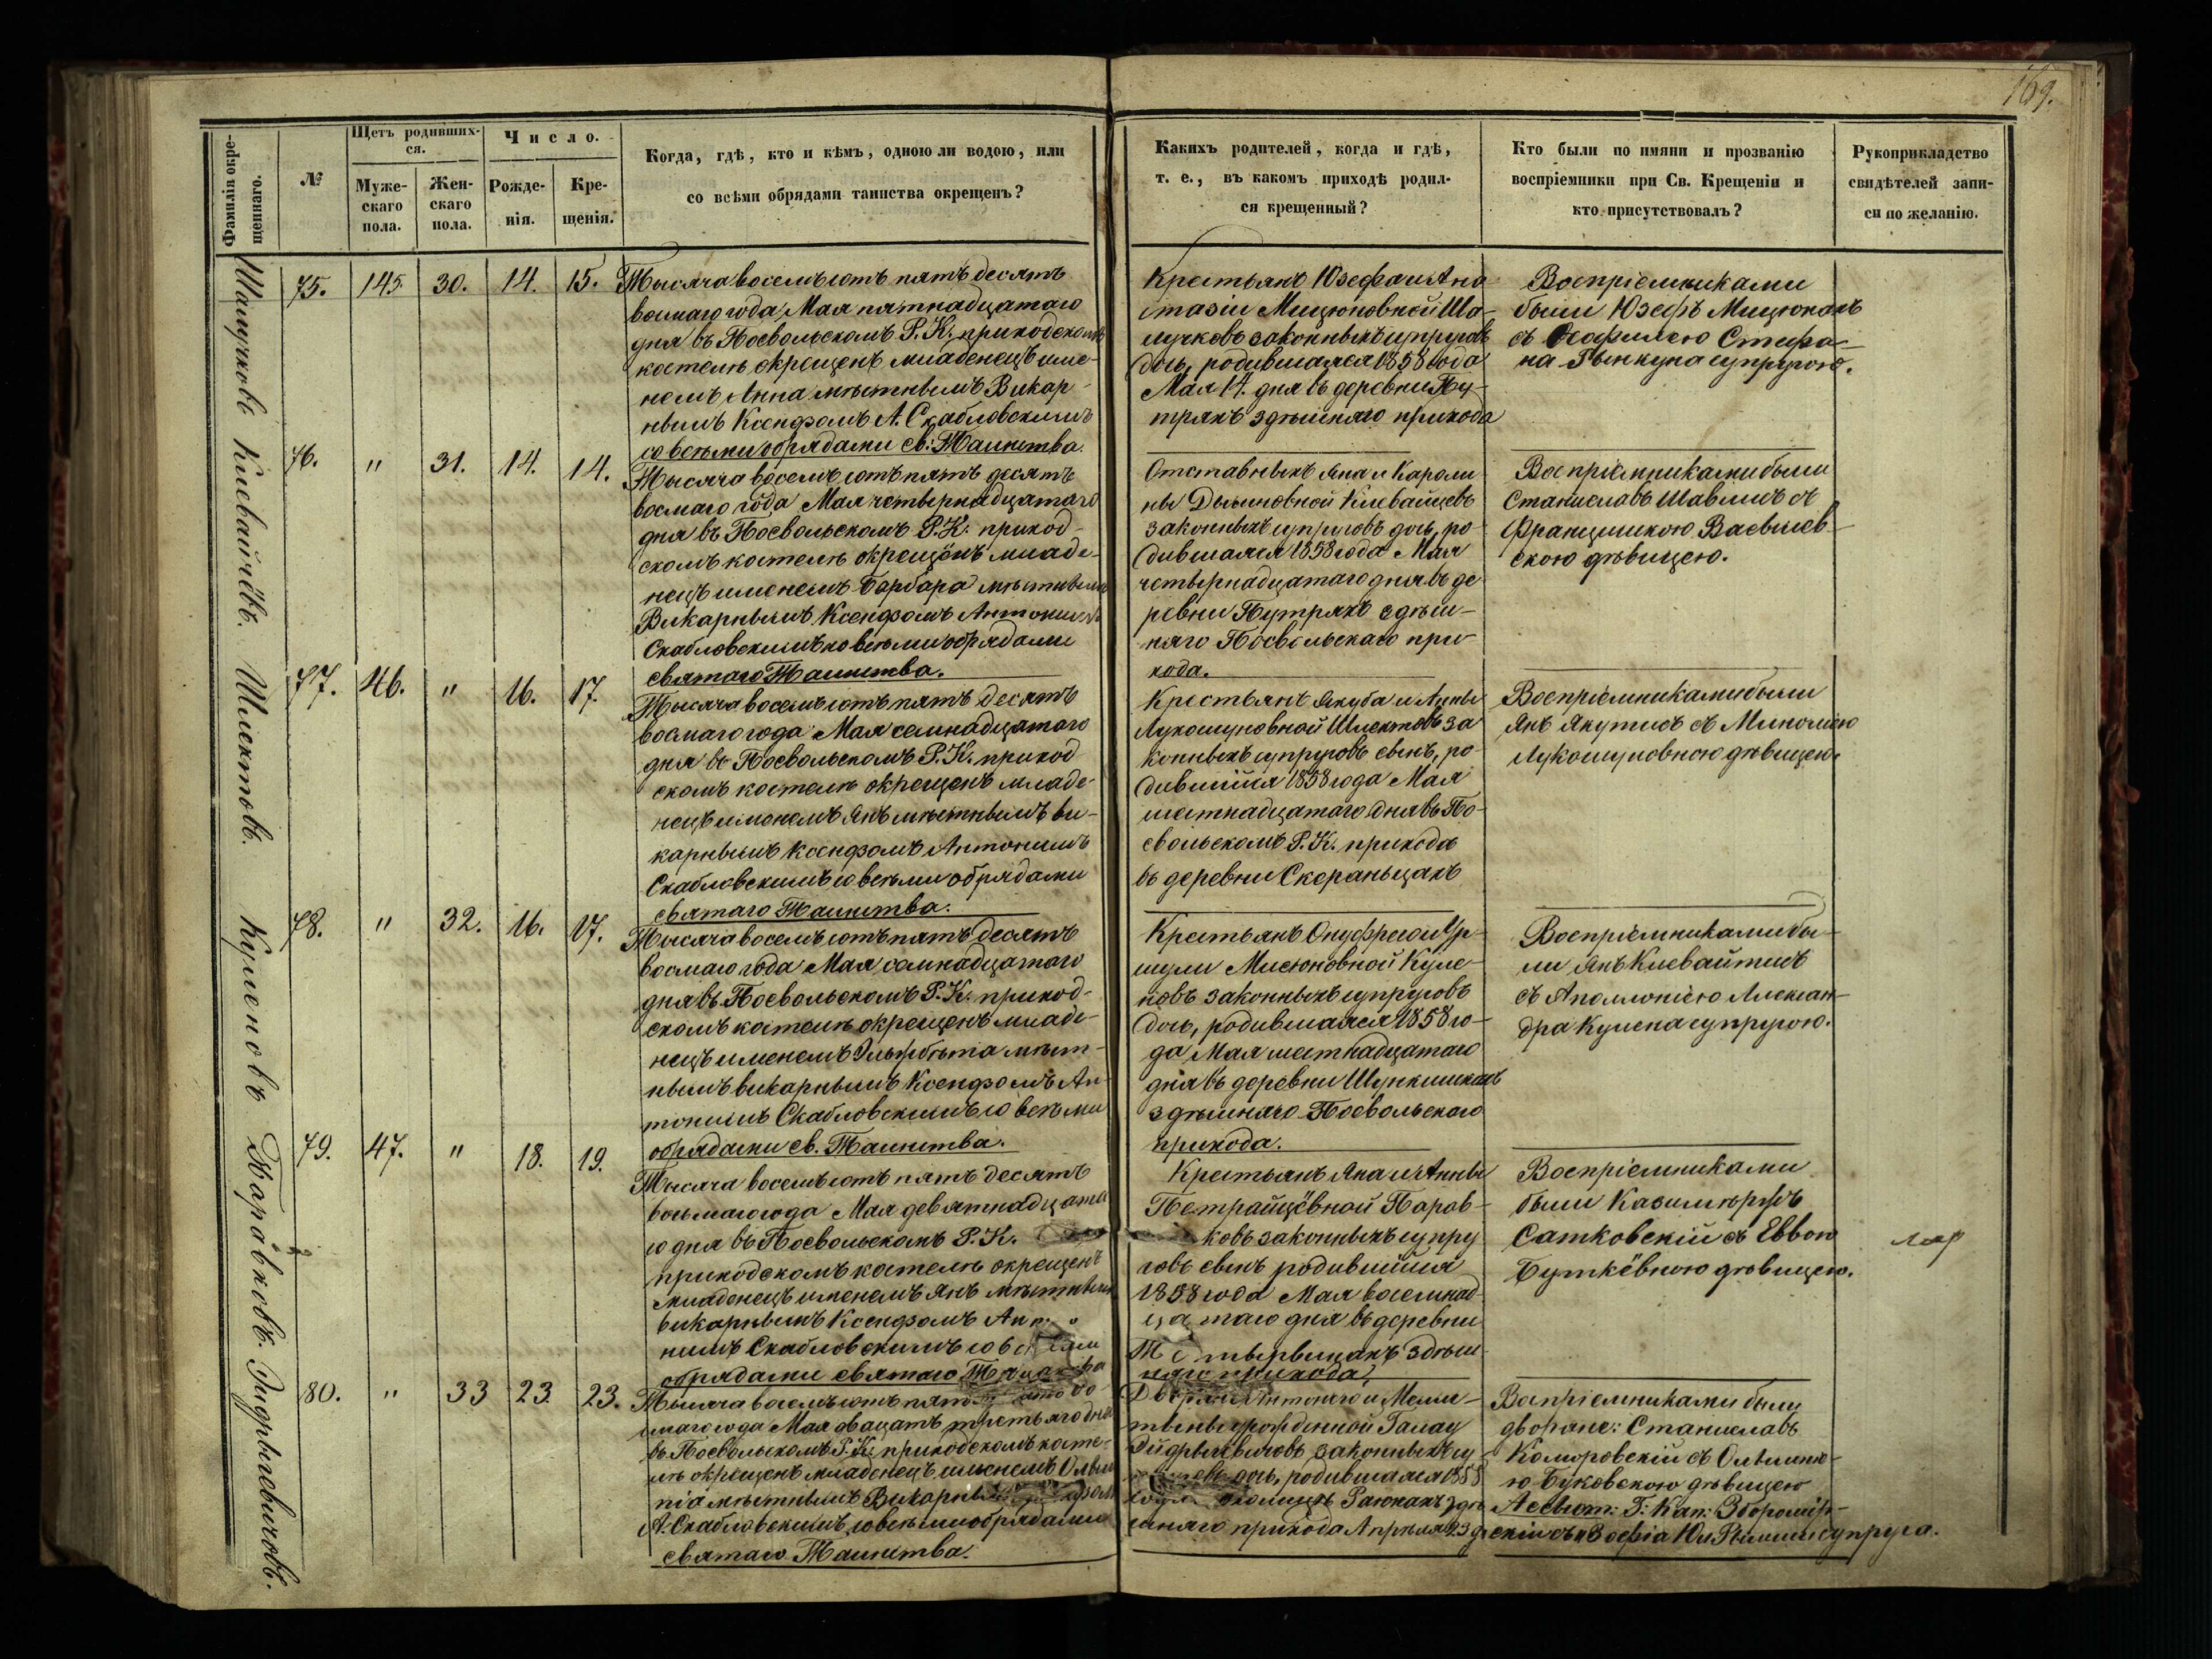 169.
Фамилія окре-
щеннаго.
№
Щетъ родивших-
ся.
Муже-
скаго
пола.
Жен-
скаго
пола.
Число.
Рожде-
нія.
Кре-
щенія.
Когда, гдѣ, кто и кѣмъ, одною ли водою, или
со всѣми обрядами таинства окрещенъ?
Какихъ родителей, когда и гдѣ,
т. е., въ какомъ приходѣ родил-
ся крещенный?
Кто были по имяни и прозванію
воспріемники при Св. Крещеніи и
кто присутствовалъ?
Рукоприкладство
свидѣтелей запи-
си по желанію.
75. 145. 30. 14. 15.
Тысяча восемъ сотъ пять десятъ
восмаго года Мая пятнадцатаго
дня въ Посвольскомъ Р. К. приходскомъ
костелѣ окрещенъ младенецъ име-
немъ Анна мѣстнымъ Викар-
нымъ Ксендзомъ А. Скабловскимъ
со всѣми обрядами св: Таинства.
Крестьянъ Юзефа и Ана
стазіи Мицюновной Ша-
лучковъ законныхъ супруговъ
дочь, родившаяся 1858 года
Мая 14. дня въ деревни Пу-
тряхъ здѣшняго прихода
Воспріемниками
были Юзефъ Мицюнахъ
съ Теофилею Стефа-
на супругою.
Клевайчёвъ.
76. " 31. 14. 14.
Тысяча восемъ сотъ пять десятъ
восмаго года Мая четырнадцатаго
дня въ Посвольскомъ Р. К. приход-
скомъ костелѣ окрещенъ младе-
нецъ именемъ Барбара мѣстнымъ
Викарнымъ Ксендзомъ Антонимъ
Скабловскимъ со всѣми обрядами
святаго Таинства.
Отставныхъ Яна и Кароли
ны Клевайцевъ
законныхъ супруговъ дочь, ро-
дившаяся 1858 года Мая
четырнадцатаго дня въ де
ревни Путряхъ здѣш-
няго Посвольскаго при-
хода.
Воспріемниками были
Станиславъ Шавлисъ съ
Францишкою Васьилев-
скою дѣвицею.
Шлектовъ.
77. 46. " 16. 17.
Тысяча восемъ сотъ пять десятъ
восмаго года Мая семнадцатаго
дня въ Посвольскомъ Р. К. приход
скомъ костелѣ окрещенъ младе-
нецъ именемъ Янъ мѣстнымъ ви-
карнымъ Ксендзомъ Антонимъ
Скабловскимъ со всѣми обрядами
святаго Таинства.
Крестьянъ Якуба и Анны
Лукошуновной Шлектовъ за
конныхъ супруговъ сынъ, ро-
дившійся 1858 года Мая
шестнадцатаго дня въ По-
свольскомъ Р. К. прихода
въ деревни Скораньцахъ
Воспріемниками были
Янъ Якутисъ съ
Лукошуновною дѣвицею.
Куленовъ
78. " 32. 16. 17.
Тысяча восемъ сотъ пять десятъ
восмаго года Мая семнадцатаго
дня въ Посвольскомъ Р. К. приход-
скомъ костелѣ окрещенъ младе-
нецъ именемъ Эльжбѣта мѣст-
нымъ викарнымъ Ксендзомъ Ан-
тонимъ Скабловскимъ со всѣми
обрядами св. Таинства.
Крестьянъ Онуфрего и Ур-
шули Мисюновной Куле-
новъ законныхъ супруговъ
дочь, родившаяся 1858 го-
да Мая шестнадцатаго
дня въ деревни Шункишкахъ
здѣшняго Посвольскаго
прихода.
Воспріемниками бы-
ли Янъ Клевайтисъ
съ Аполлоніею Алексан-
дра Кулена супругою.
Паравковъ.
79. 47. " 18. 19.
Тысяча восемъ сотъ пять десятъ
восьмаго года Мая девятнадцата
го дня въ Посвольскомъ Р. К.
приходскомъ костелѣ окрещенъ
младенецъ именемъ Янъ мѣстнымъ
викарнымъ Ксендзомъ Анто
нимъ Скабловскимъ со всѣми
обрядами святаго Таинства
Крестьянъ Яна и Анны
Петрайцёвной Парав-
ковъ законныхъ супру
говъ сынъ родившійся
1858 года Мая восемнад
цатаго дня въ деревни
здѣш
няго прихода.
Воспріемниками
были Казимѣръ
Сатковскій съ Еввою
Буткёвною дѣвицею.
80. " 33 23. 23.
Тысяча восемъ сотъ пять десятъ во-
смаго года Мая двацать третьяго дня
въ Посвольскомъ Р. К. приходскомъ косте-
лѣ окрещенъ младенецъ именемъ Олим
піа мѣстнымъ Викарнымъ Ксендзомъ
А. Скабловскимъ, со всѣми обрядами
святаго Таинства.
Дворянъ Антонаго и
урожденной
законныхъ су
дочь, родившаяся 1858
здѣ
шняго прихода Апрѣля 23 д
Воспріемниками были
дворяне: Станиславъ
Коморовскій съ
ю Буковскою дѣвицею
Ассист: Г: Кап:
скій съ Зофіа супруга.